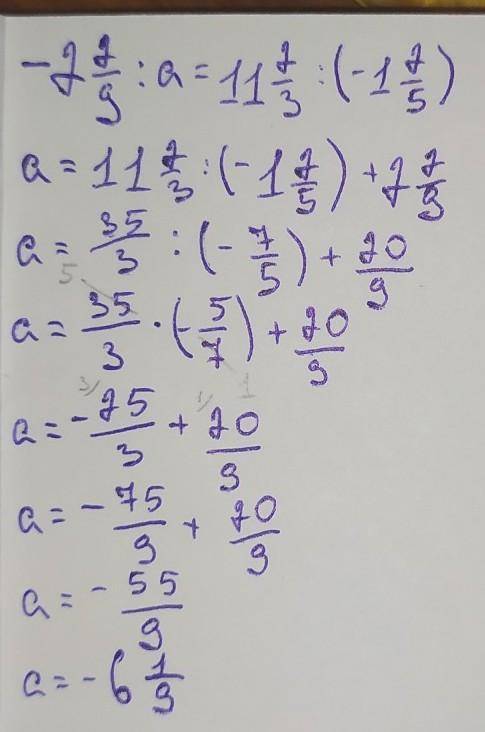 -2 2/9 : a = 11 2/3 : (-1 2/5)
a = 11 2/3 : (-1 2/5) + 2 2/9
a = 35/3 : (-7/5) + 20/9
a = 35/3 · (-5/7) + 20/9
a = -25/3 + 20/9
a = -75/9 + 20/9
a = -55/9
a = -6 1/9